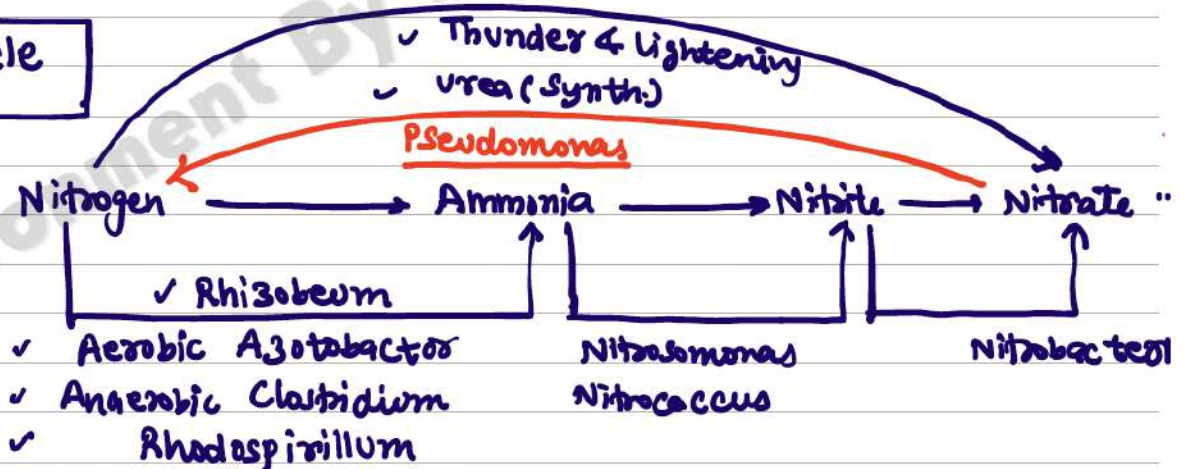 cle
Thunder & Lightening
Urea (Synth.)
Pseudomonas
Nitrogen → Ammonia → Nitrite → Nitrate
✓ Rhizobeum
✓ Aerobic Azotobactor
✓ Anaerobic Clostridium
✓ Rhodospirillum
Nitrosomonas
Nitrococcus
Nitrobacter